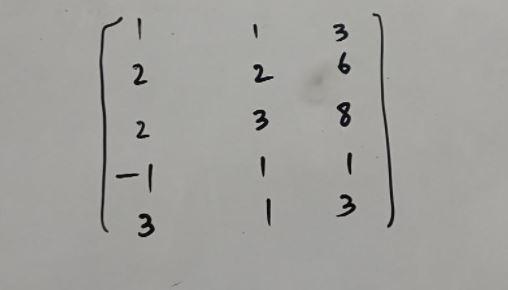 1 1 3
2 2 6
2 3 8
-1 1 1
3 1 3